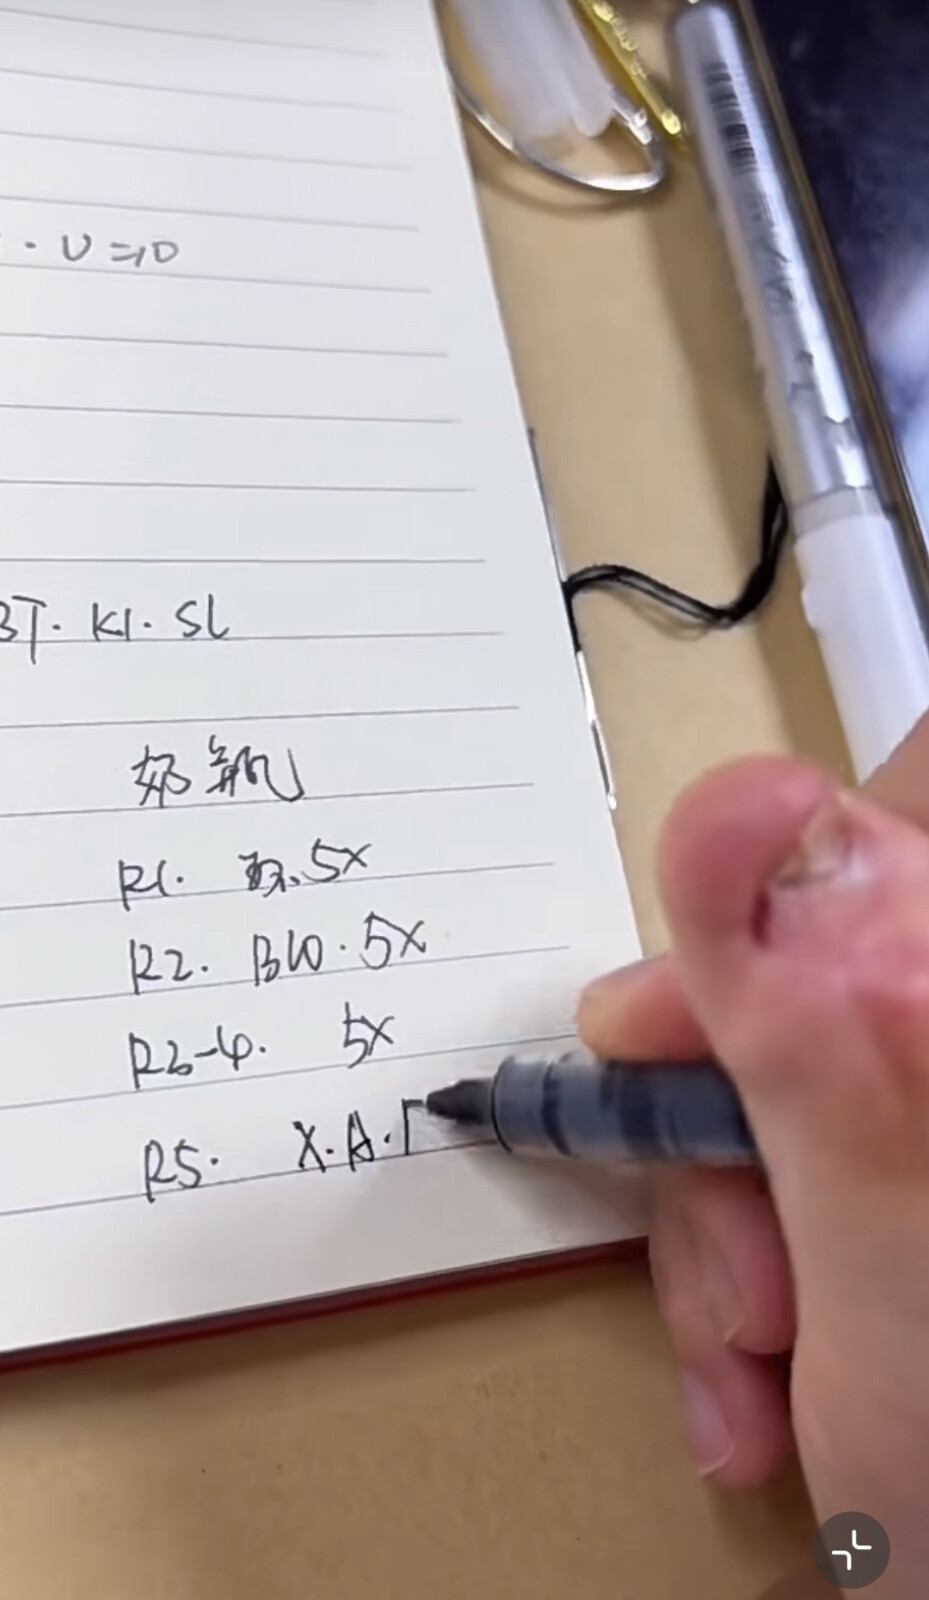 · U⇒D
BT. K1. SL
奶瓶
R1. 环.5X
R2. BLO. 5X
R3-4. 5X
R5. X.A.